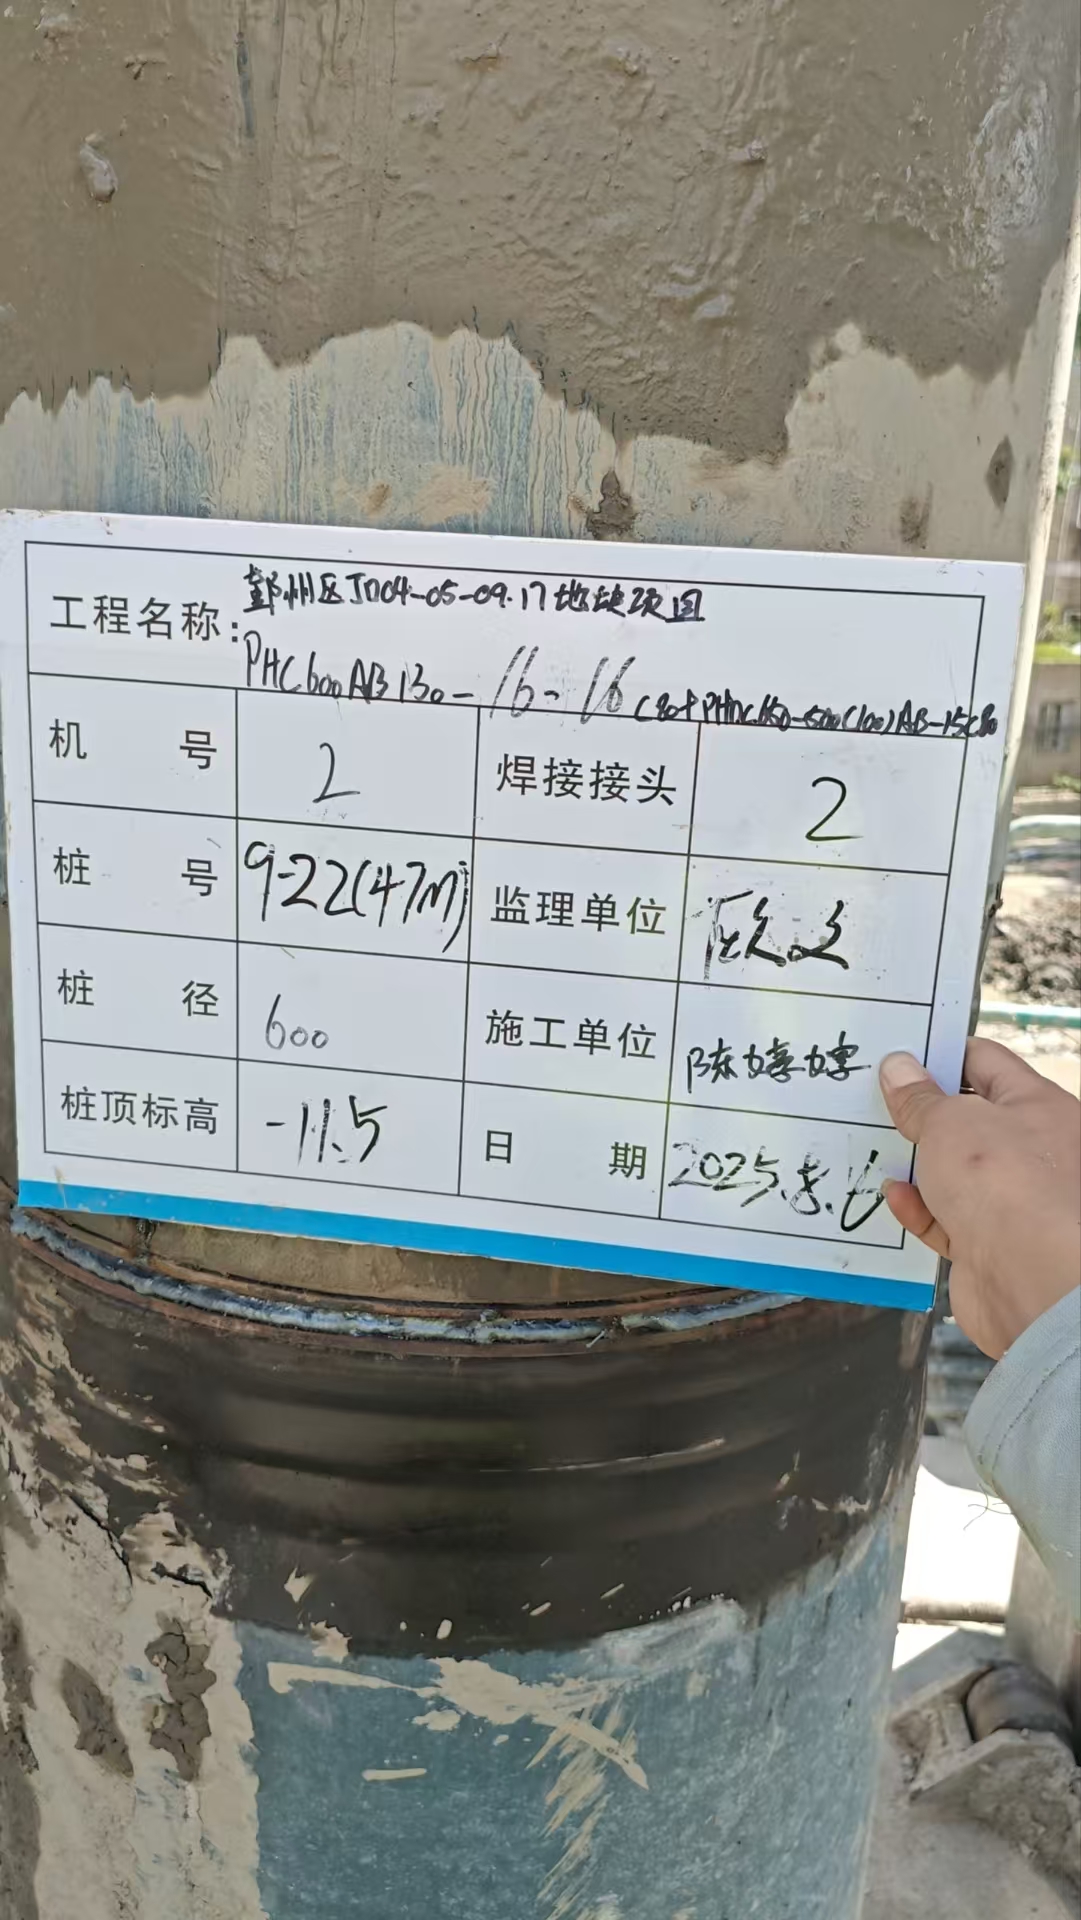 工程名称:
鄞州区JD04-05-09.17地块项目
PHC600AB130-16-16 C80+PHDC650-500(100)AB-15C80
机号 2 焊接接头 2
桩号 9-22(47m) 监理单位
桩径 600 施工单位 陈婷婷
桩顶标高 -11.5 日期 2025.8.6